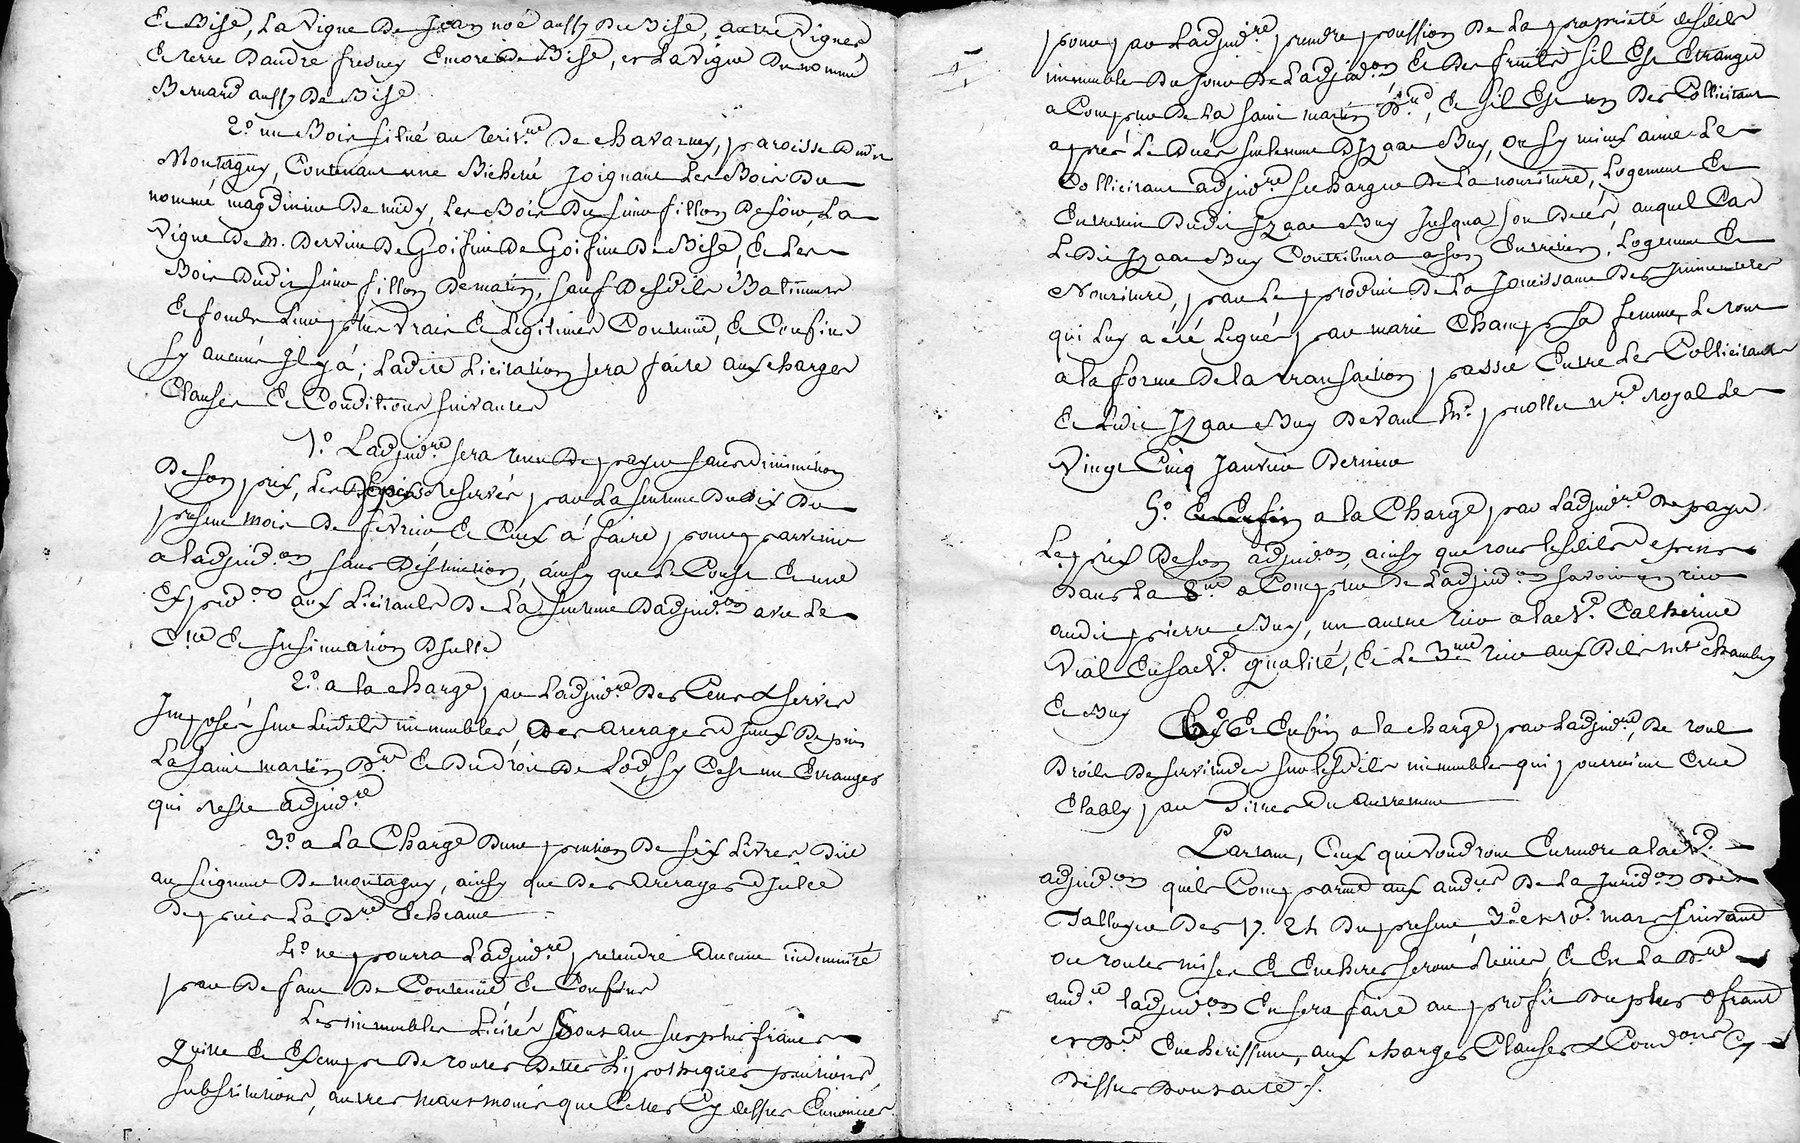 de Bise, la Vigne de Jean noé aussy de Bise, autre Vignes
et terre dandré fresney encore de Bise, et la Vigne du nommé
Bernard aussy de Bise
2.º un Bois situé au territ.re de chavarney, paroisse dudit
Montagny, Contenant une Bicherée, joignant les Bois du
nommé magdinier de midy, les Bois du sieur fillon de soir la
Vigne de M. Dervieu de Goifieu de Goifieu de Bise, et les
Bois dudit sieur fillon de matin, sauf desdits Batiments
et fonds leurs plus vrais et legitimes Contenüe, et Confins
sy aucuns il y á; ladite licitation sera faite aux charges
Clauses et Conditions suivantes
1.º Ladjud.re sera tenu de payer sans diminution
de son prix, les dépens reservés par la sentence du dix du
present mois de fevrier et Ceux á faire pour parvenir
a ladjud.on sans distinction, ainsy que le Coust et une
Expéd.on aux licitants de la sentence dadjud.on avec le
C.le et Insinuation dicelle
2.º a la charge par ladjud.re des Cens & servis
Imposés sur lesdits immeubles, des arrerages diceux depuis
la saint martin d.re et du droit de Lod, sy Cest un Etranger
qui reste adjud.re
3.º a la Charge dune pension de six Livres düe
au seigneur de montagny, ainsy que des arrerages dicelle
depuis la d.re Echéance
4.º ne pourra ladjud.re pretendre aucune indemnité
par defaut de Contenüe et Confins
Les immeubles licités sont au surplus francs
quitte et Exempt de toutes dettes hipotheques pensions,
substitutions, autres neantmoins que Celles Cy dessus Enoncées
pour par ladjud.re prendre possession de la propriété desdits
immeubles du jour de ladjud.on et des fruits sil Est Etranger
a Compter de la saint martin d.re, et sil Est un des Collicitants
aprés le decés seulement dIzaac Buy, ou sy mieux aime le
Collicitant adjud.re se charger de la nouriture, logement et
Entretien dudit Izaac Buy jusqua son decés, auquel Cas
ledit Izaac Buy Contribuera a son Entretien, logement et
Nouriture, par le produit de la jouissance des immeubles
qui luy a été legués par marie Champ sa femme, le tout
a la forme de la transaction passée Entre les Collicitants
et ledit Izaac Buy devant M.e prollet n.re royal le
Vingt Cinq Janvier dernier
5.º a la Charge par ladjud.re de payer
le prix de son adjud.on, ainsy que tous lesdits depens
dans la 8.ne a Compter de ladjud.on savoir un tier
audit pierre Buy, un autre tier a lad.e V.e Catherine
Vial En sad.e qualité, et le 3.me tier aux dits chambry
et Buy
6.º Et Enfin a la charge par ladjud.re, de tous
droits de servitudes sur lesdits immeubles qui pourroient Etre
Etably par titres ou autrement
Partant, Ceux qui voudront Entendre a lad.e
adjud.on quils Comparent aux aud.ces de la jurid.on des
Tallaru des 17. 24 du present, 3.e et 10.e mars suivant
ou toutes mises et Encheres seront reçües, et En la d.re
aud.ce ladjud.on En sera faire au profit du plus ofrant
et d.er Encherisseur, aux charges Clauses & Cond.ons Cy
dessus dont acte